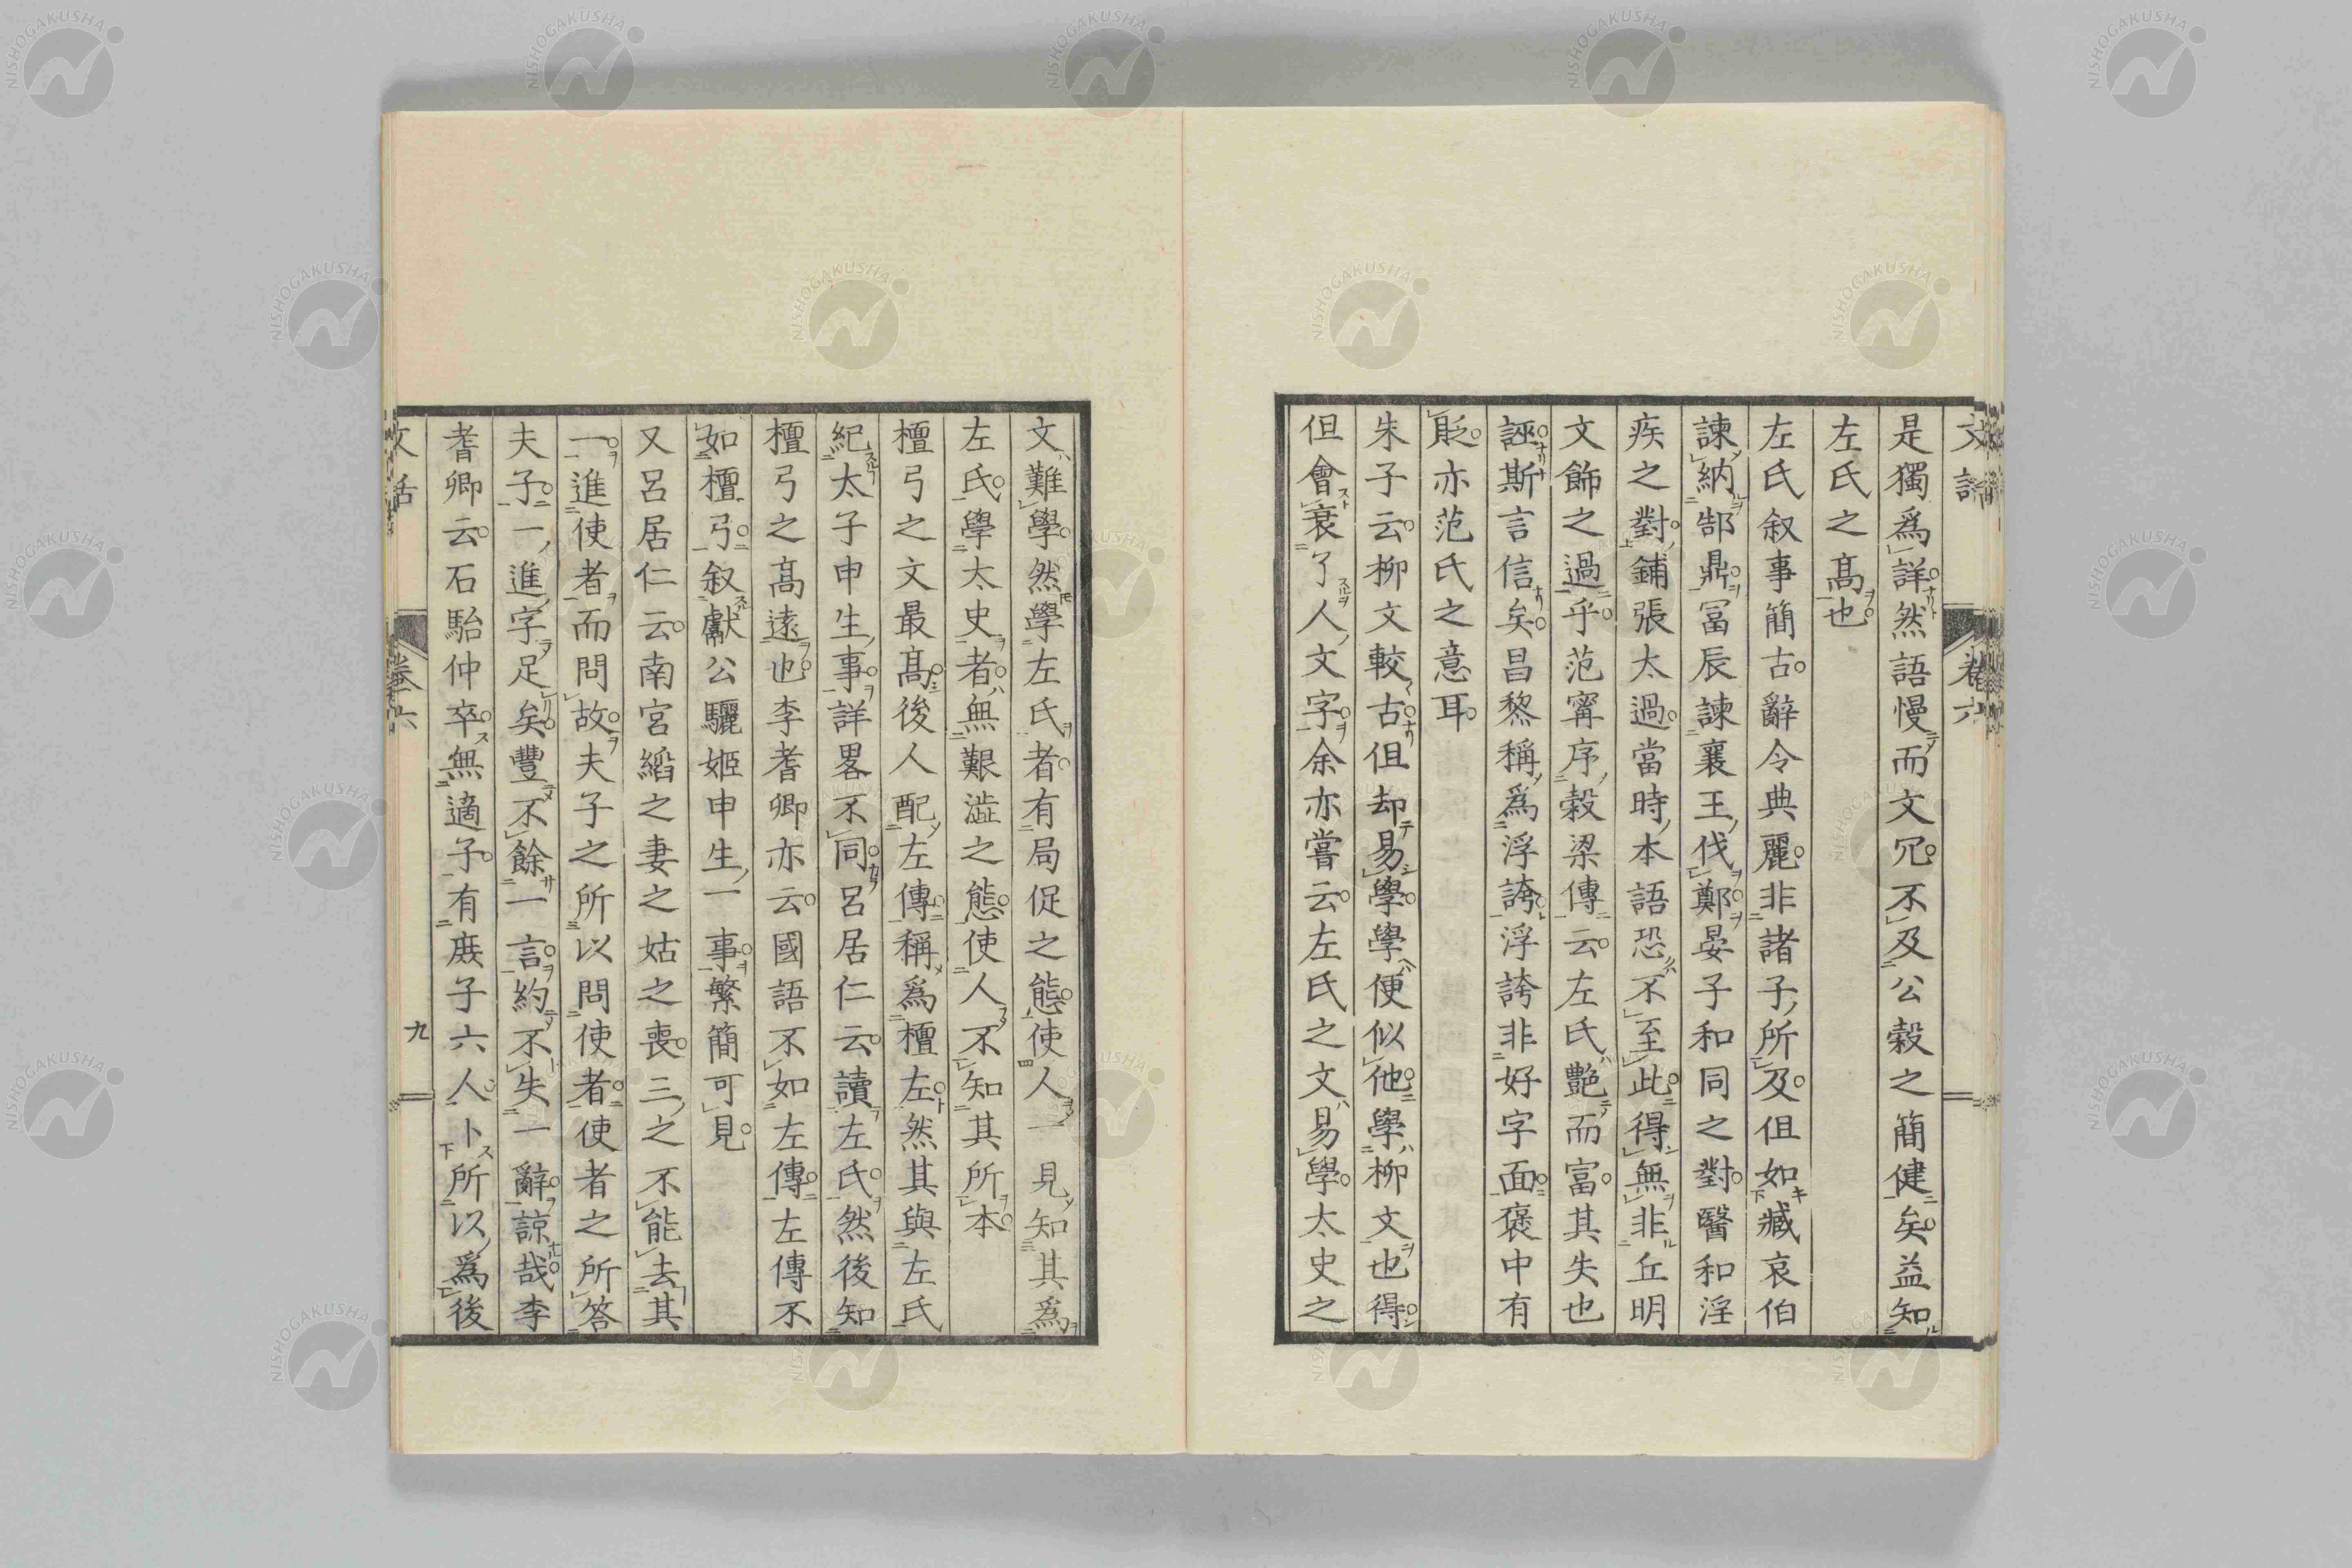 文話 卷六
是獨爲詳然語慢而文冗不及公穀之簡健矣益知
左氏之髙也
左氏叙事簡古辭令典麗非諸子所及但如臧哀伯
諫納郜鼎冨辰諫襄王伐鄭晏子和同之對醫和淫
疾之對鋪張太過當時本語恐不至此得無非丘明
文飾之過乎范甯序穀梁傳云左氏艷而富其失也
誣斯言信矣昌黎稱爲浮誇浮誇非好字面褒中有
貶亦范氏之意耳
朱子云柳文較古但却易學學便似他學柳文也得
但會衰了人文字余亦嘗云左氏之文易學太史之
文難學然學左氏者有局促之態使人一見知其爲
左氏學太史者無艱澁之態使人不知其所本
檀弓之文最髙後人配左傳稱爲檀左然其與左氏
紀太子申生事詳畧不同呂居仁云讀左氏然後知
檀弓之髙遠也李耆卿亦云國語不如左傳左傳不
如檀弓叙獻公驪姬申生一事繁簡可見
又呂居仁云南宮縚之妻之姑之喪三之不能去其
一進使者而問故夫子之所以問使者使者之所答
夫子一進字足矣豐不餘一言約不失一辭諒哉李
耆卿云石駘仲卒無適子有庶子六人卜所以爲後
文話 卷六 九
NISHOGAKUSHA